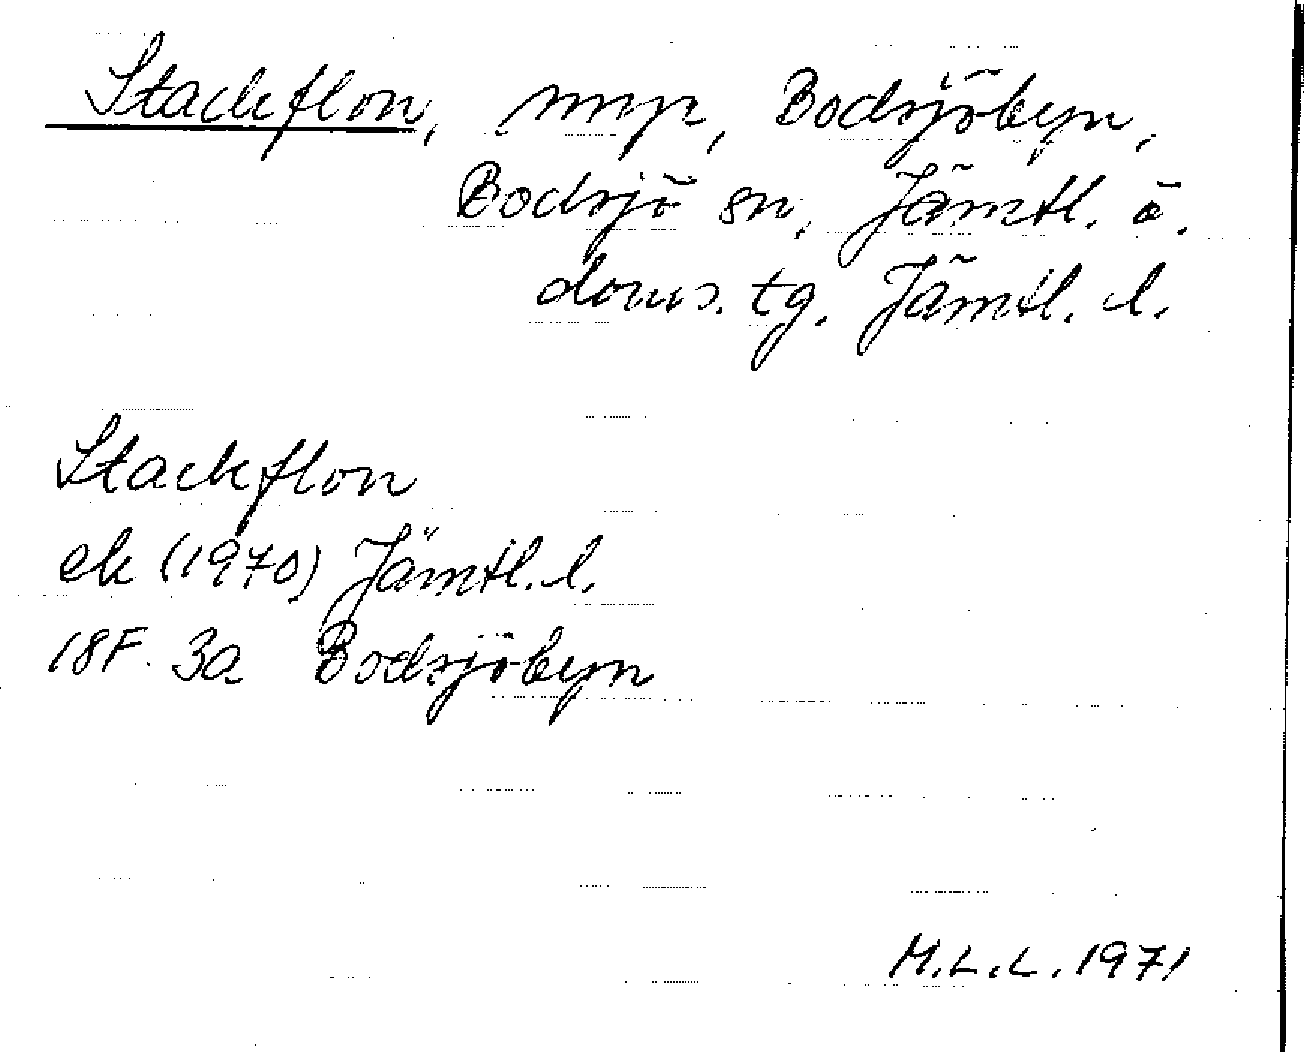 Stackflon, myr, Bodsjöbyn,
Bodsjö sn, Jämtl. ö.
doms. tg. Jämtl. l.
Stackflon
ek (1970) Jämtl. l.
18F. 3a Bodsjöbyn
M.L.L. 1971